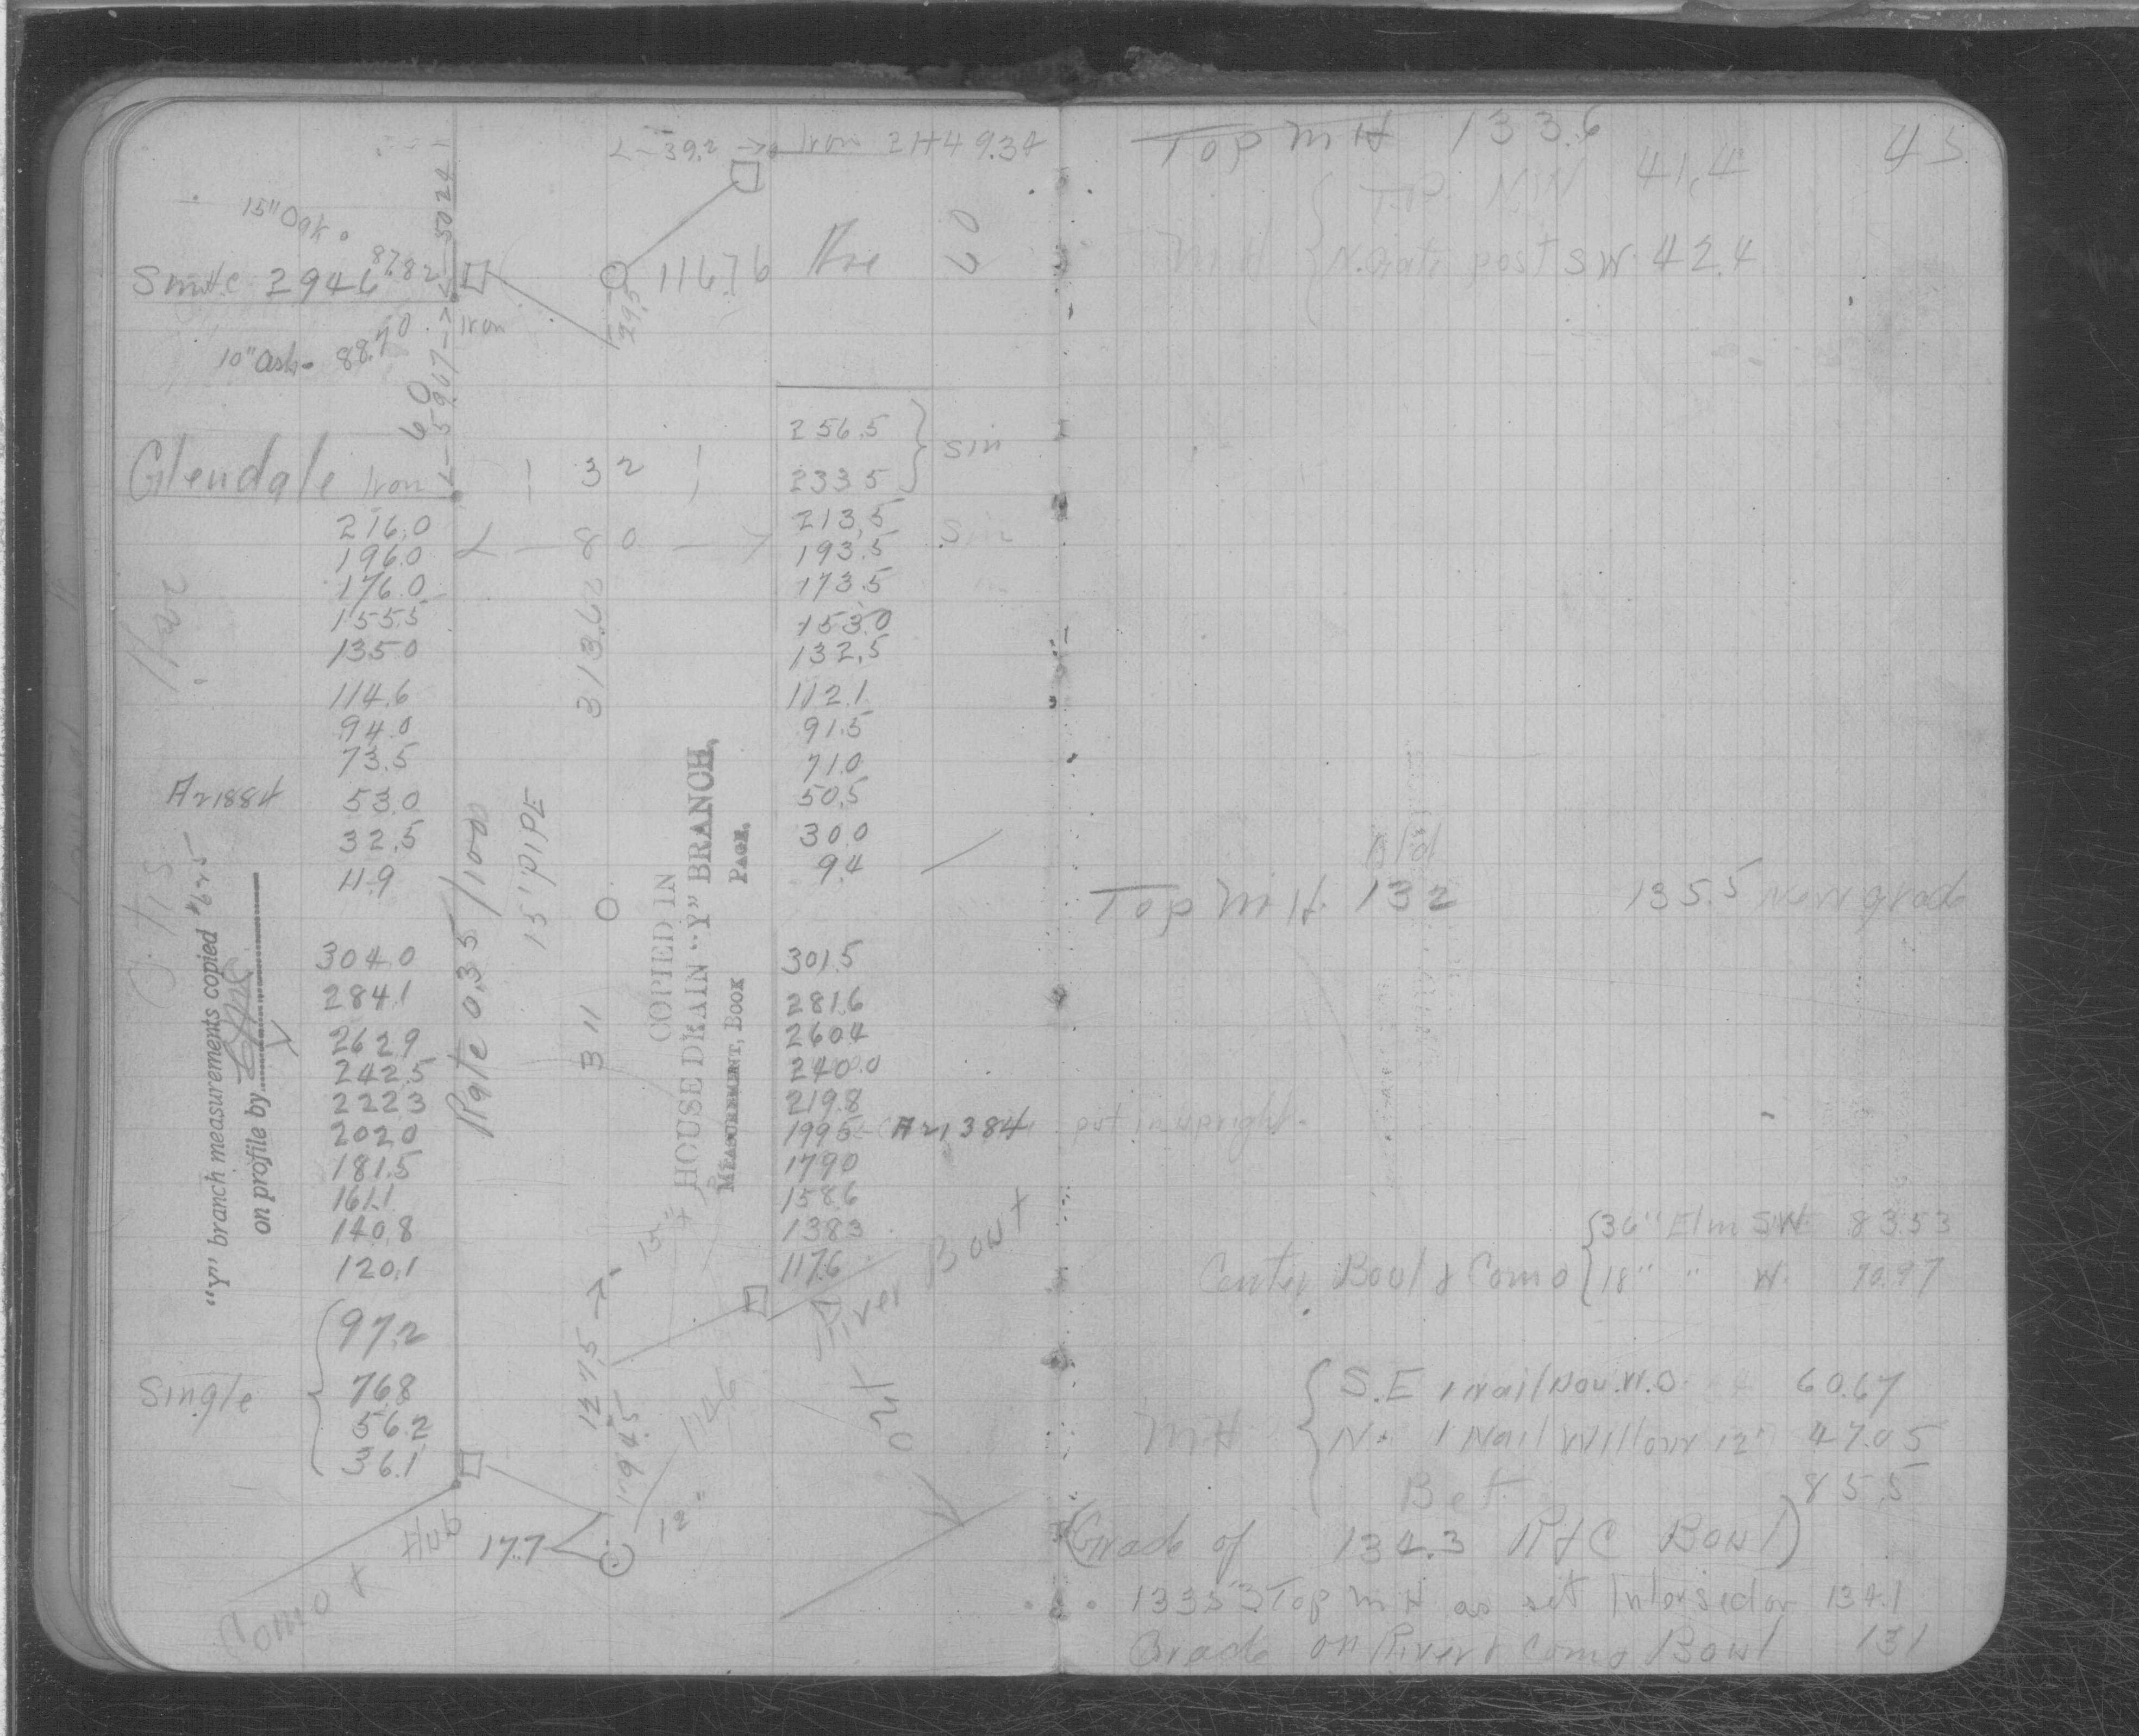 <-39.2-> Iron 2+49.34
15" Oak
50 24
87.82
Smith 2946
Iron
11676 Ave 60
29.5
10" Ash 88.70
60
<-59.07->
Glendale Iron
32
<- 80 ->
Ave
216.0
196.0
176.0
155.5
135.0
114.6
94.0
73.5
53.0
32.5
11.9
A21884
256.5
233.5
Sin
213.5
193.5
Sin
173.5
153.0
132.5
112.1
91.5
71.0
50.5
30.0
9.4
313.62
Rate 0.35/100
15" PIPE
Otis
"Y" branch measurements copied #625
on profile by
COPIED IN
HOUSE DRAIN "Y" BRANCH,
MEASUREMENT, BOOK PAGE,
304.0
284.1
262.9
242.5
222.3
202.0
181.5
161.1
140.8
120.1
97.2
76.8
56.2
36.1
Single
311
301.5
281.6
260.4
240.0
219.8
199.5 A21384 put in upright
179.0
158.6
138.3
117.6
15"
River Bowl
127.5 ->
194.5
114.6
12"
out
17.7
Como &
Top M H 133.6
45
M H
T.P. N.W 41.4
N. Gate post SW 42.4
Top M H. 132
135.5 New grade
Center Boul & Como
36" Elm S.W. 83.53
18" " W. 70.97
M H
S.E 1 Nail 60.67
N. 1 Nail Willow 12" 47.05
Bet 85.5
(Grade of 134.3 R & C Bowl)
Top M H as set Intersection 134.1
Grade on River & Como Bowl 131